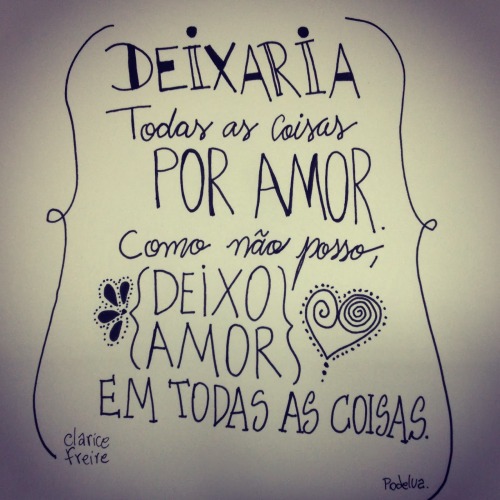 DEiXARiA
Todas as coisas
POR AMOR.
Como não posso,
DEiXO
AMOR
EM TODAS AS COISAS.
clarice
freire
Podelua.